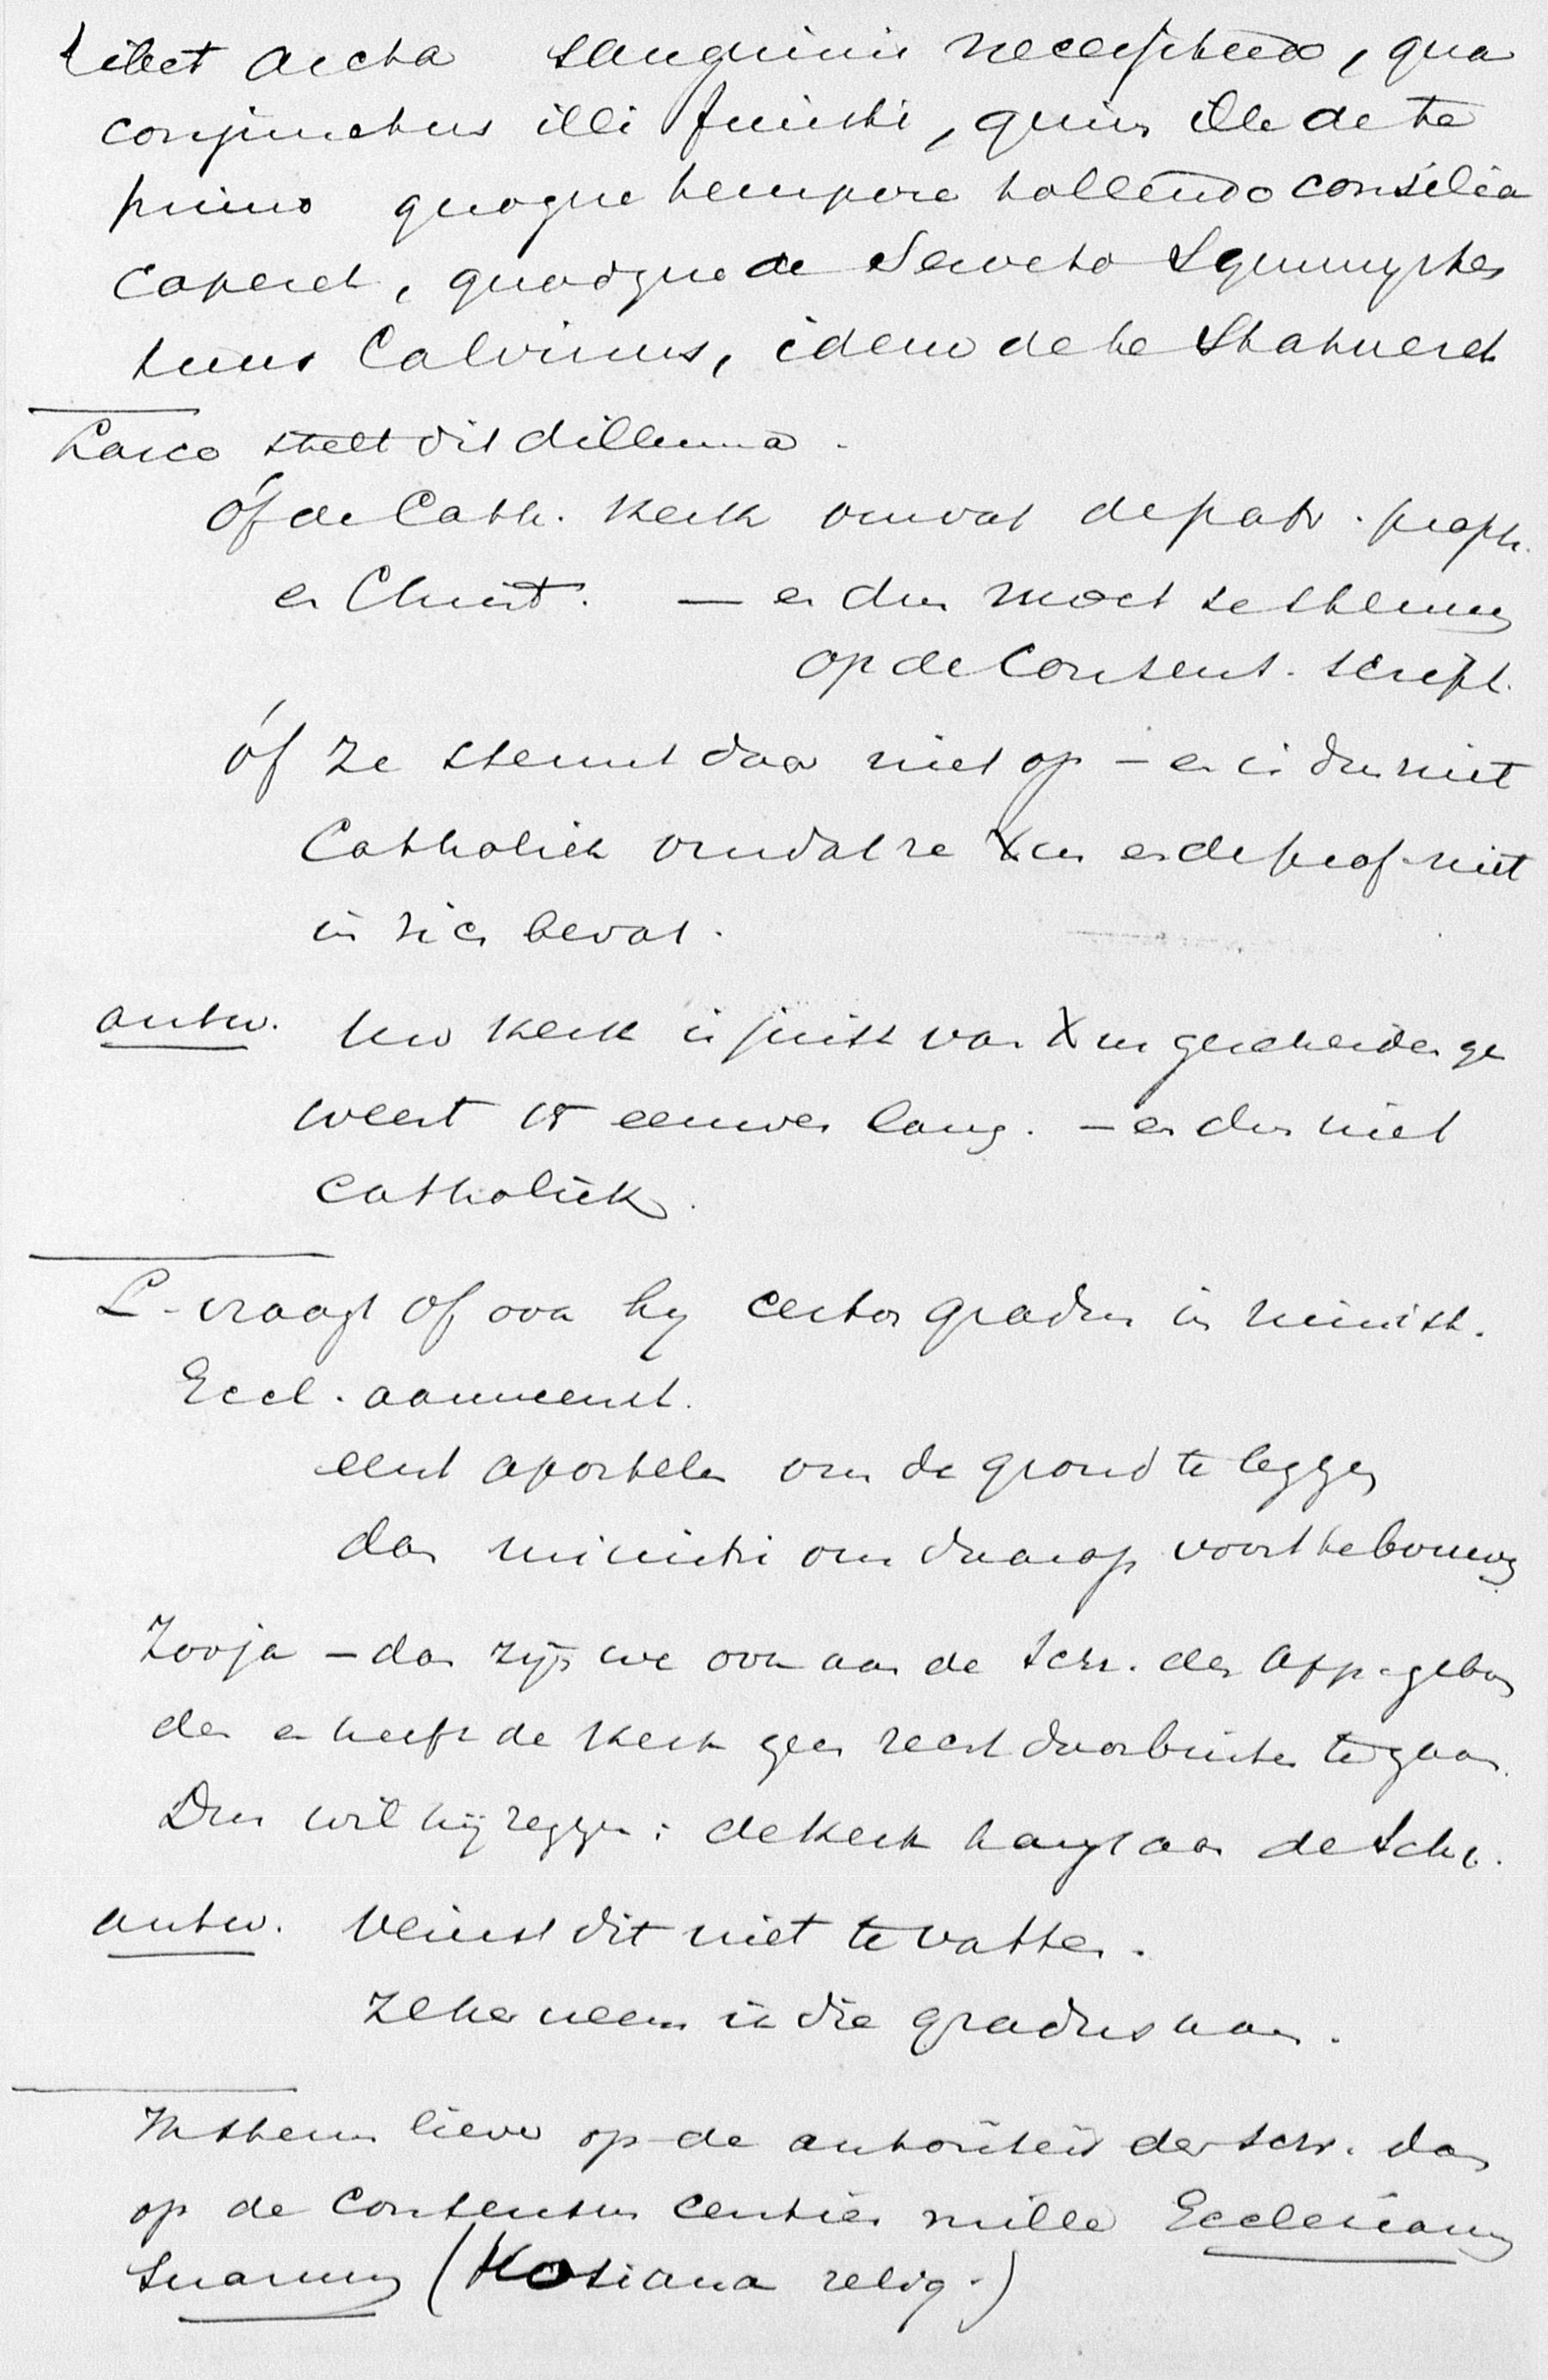 libet arcta sanguinis necessitudo, qua
conjunctus illi fuisti, quin ille de te
primo quoque tempore tollendo consilia
caperet, quodque de Serveto Symmystes
tuus Calvinus, idem de te statueret
Lasco stelt dit dillemma.
óf de Cath. Kerk omvat de patr. proph.
en Christ. — en dus moet ze steunen
op de Consens. script.
óf ze steunt daar niet op – en is dus niet
Catholiek omdat ze Xum en de prof. niet
in zich bevat.
antw. Uw Kerk is juist van Xus gescheiden ge
weest 15 eeuwen lang. – en dus niet
catholiek.
L. vraagt of ook hy certos gradus in minist.
Eccl. aanneemt.
eerst apostelen om de grond te leggen
dan ministri om daarop voort te bouwen
Zooja – dan zijn we ook aan de Schr. der App. gebon
den en heeft de Kerk geen recht daarbuiten te gaan.
Dus wil hij zeggen: de Kerk hangt aan de Schr.
antw. Veinst dit niet te vatten.
Zeker neem ik die gradus aan.
Ik steun liever op de autoriteit der Schr. dan
op de Consensus centies mille Ecclesiarum
Suarum (Hosiana relig.)